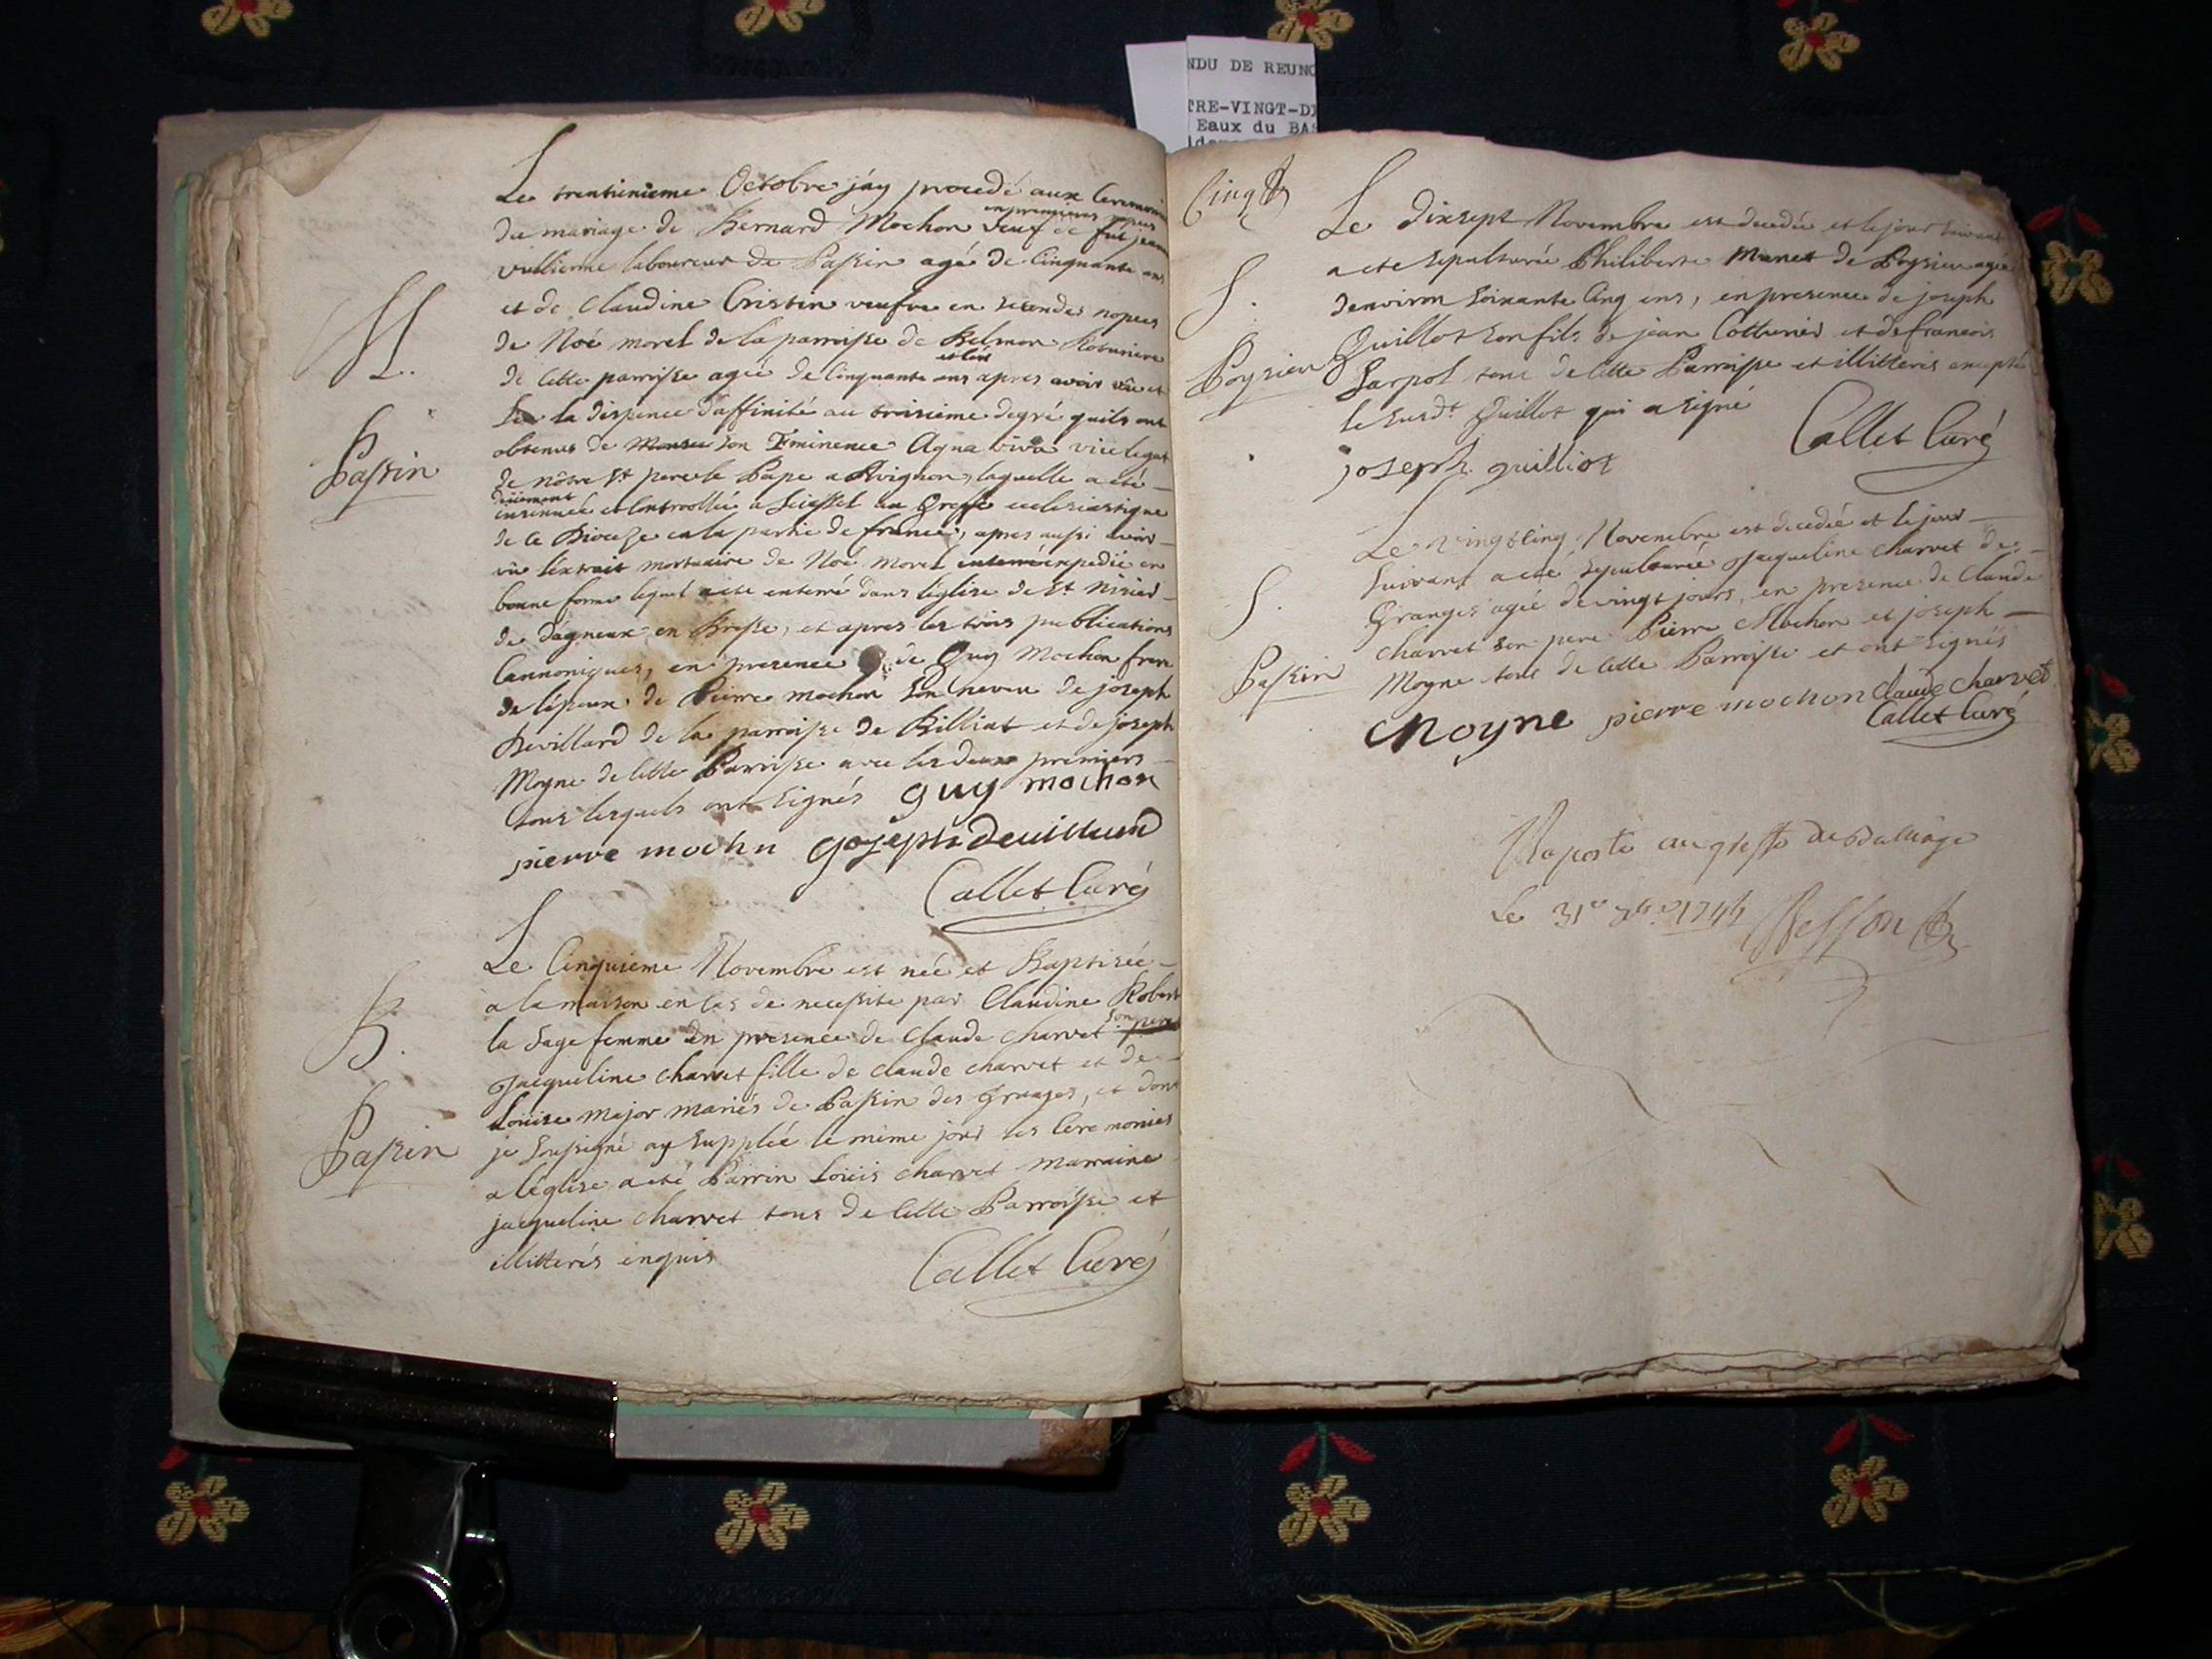 NDU DE REUNO
TRE-VINGT-DI
Eaux du BAS
Le trentunieme Octobre j'ay procedé aux Ceremonies
en premieres nopces
du mariage de Bernard Mochon veuf de fut jeanne
vullierme laboureur de Passin agé de Cinquante ans
et de Claudine Cristin veufve en secondes nopces
de Noé morel de la parroisse de Belmon
M.
de cette parroisse agée de Cinquante ans apres avoir vû et
et lüe
la dispence d'affinité au troisieme degré quils ont
Passin
obtenus de son Eminence Aquaviva vice legat
de nôtre St pere le Pape a Avignon, laquelle a été
düement
insinuée et Controollée a Seissel au Greffe ecclesiastique
de ce Dioceze en la partie de france, apres aussi avoir
vû l'extrait mortuaire de Noé Morel expedié en
bonne forme lequel a été enterré dans l'eglise de St Nisier
de dagneux en Bresse, et apres les trois publications
Cannoniques, en presence de Guy Mochon frere
de l'epoux de Pierre mochon son neveu de joseph
Devillard de la parroisse de Billiat et de joseph
Moyne de cette Parroisse avec les deux premiers
tous lesquels ont signés guy mochon
pierre mochn joseph deuillard
Callet Curé
Le Cinquieme Novembre est née et Baptisée
a la maison en cas de necessite par Claudine Robert
la sage femme en presence de Claude charvet son pere
B.
jacqueline charvet fille de claude charvet et de
Loüise major mariés de Passin des Granges, et dont
Passin
je soussigné ay supplée le même jour les Ceremonies
a l'eglise a eté Parrin Loüis charvet marraine
jacqueline charvet tous de cette Parroisse et
illitterés enquis
Callet Curé
Cinq
Le dixsept Novembre est decedée et le jour suivant
a eté sepulturée Philiberte Munet de Poysieu agée
S.
d'environ soixante Cinq ens, en presence de joseph
Quillot son fils de jean Cotturier et de francois
Poysieu
Sarpol tous de cette Parroisse et illitterés excepté
le susdt Quillot qui a signé
Callet Curé
joseph quilliot
Le vingt Cinq Novembre est decedée et le jour
suivant a eté sepulturée Jacqueline charvet des
S.
Granges agée de vingt jours, en presence de Claude
charvet son pere Pierre Mochon et joseph
Passin
Moyne tous de cette Parroisse et ont signés
Moyne pierre mochon claude charvet
Callet Curé
Raporté au greffe du Balliage
Le 31e 1744 Besson